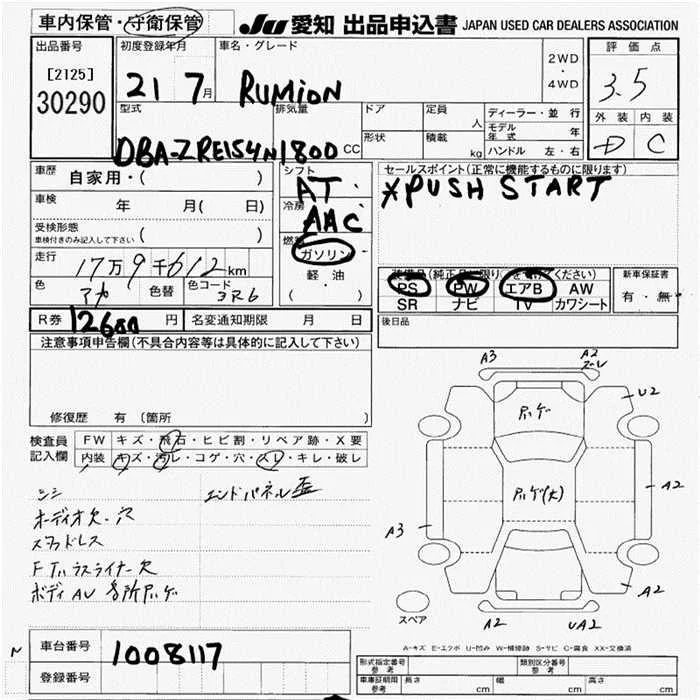 車内保管・守衛保管
JU 愛知 出品申込書 JAPAN USED CAR DEALERS ASSOCIATION
出品番号
[2125]
30290
初度登録年月
21 7月
車名・グレード
RUMION
2WD
・
4WD
評価点
3.5
外装 内装
D C
型式
DBA-ZRE154N
排気量
1800 cc
ドア
形状
定員 人
積載 kg
ディーラー・並行
モデル年式 年
ハンドル 左・右
車歴
自家用・( )
車検 年 月( 日)
受検形態
車検付きのみ記入して下さい ( )
走行
17万9千612km
色 色替 色コード
3R6
シフト
AT
冷房
AAC
燃料
ガソリン
・
軽・油
( )
セールスポイント(正常に機能するものに限ります)
PUSH START
装備品(純正品に限り○を付けてください)
PS PW エアB AW
SR ナビ TV カワシート
新車保証書
有・無
後日品
R券 12600 円 名変通知期限 月 日
注意事項申告欄(不具合内容等は具体的に記入して下さい)
修復歴 有(箇所 )
検査員記入欄
FW キズ・飛石・ヒビ割・リペア跡・X要
内装 キズ・汚レ・コゲ・穴・スレ・キレ・破レ
シミ
エンドパネル歪
オーディオ欠・穴
スタッドレス
ボディAU 各所
A3
A2
U2
A2
A3
A2
A2
UA2
スペア
A-キズ E-エクボ U-凹み W-補修跡 S-サビ C-腐食 XX-交換済
車台番号
1008117
登録番号
N
形式指定番号 参考
類別区分番号 参考
車庫証明用 参考 長さ cm 幅 cm 高さ cm